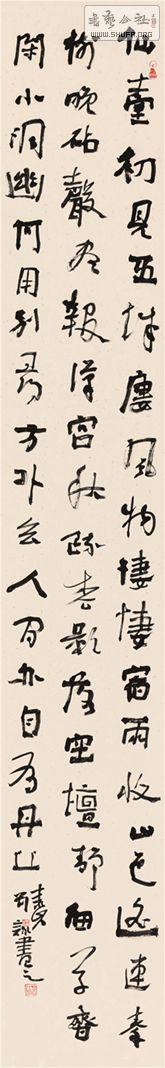 書藝公社
WWW.SHUFA.ORG
仙臺初見五城樓風物悽悽宿雨收山色遙連秦
樹晚砧聲近報漢宮秋疏松影落空壇靜細草香
閑小洞幽何用別尋方外去人間亦自有丹丘
書之